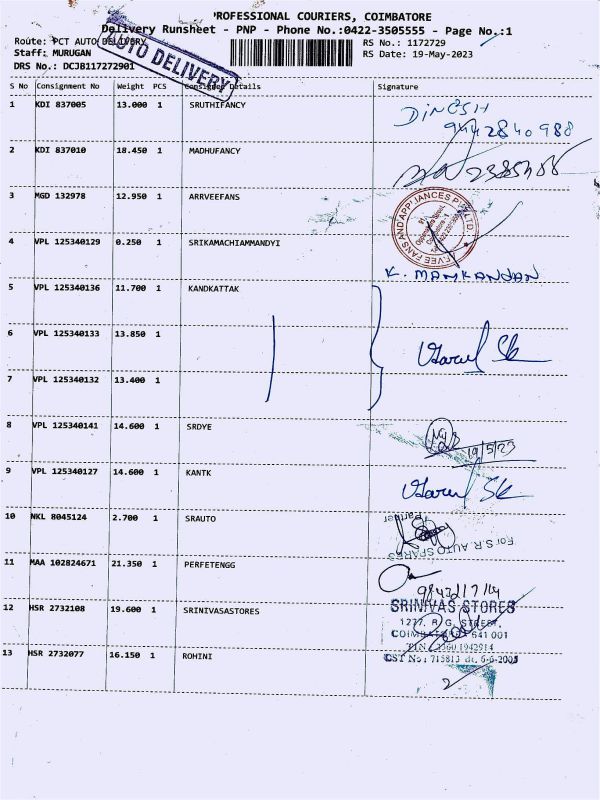 PROFESSIONAL COURIERS, COIMBATORE
Delivery Runsheet - PNP - Phone No.:0422-3505555 - Page No.:1
Route: PCT AUTO DELIVERY
RS No.: 1172729
Staff: MURUGAN
RS Date: 19-May-2023
DRS No.: DCJB117272901
AUTO DELIVERY
S No Consignment No Weight PCS Consignee Details Signature
1 KDI 837005 13.000 1 SRUTHIFANCY
DINESH
9442840988
2 KDI 837010 18.450 1 MADHUFANCY
3 MGD 132978 12.950 1 ARRVEEFANS
FANS AND APPLIANCES
4 VPL 125340129 0.250 1 SRIKAMACHIAMMANDYI
K. MANIKANDAN
5 VPL 125340136 11.700 1 KANDKATTAK
6 VPL 125340133 13.850 1
7 VPL 125340132 13.400 1
8 VPL 125340141 14.600 1 SRDYE
19/5/23
9 VPL 125340127 14.600 1 KANTK
10 NKL 8045124 2.700 1 SRAUTO
Partner
For S.R. AUTO SPARES
11 MAA 102824671 21.350 1 PERFETENGG
12 HSR 2732108 19.600 1 SRINIVASASTORES
SRINIVAS STORES
1277, R.G. STREET,
COIMBATORE - 641 001
CST No: 715813 dt. 6-6-2005
13 HSR 2732077 16.150 1 ROHINI